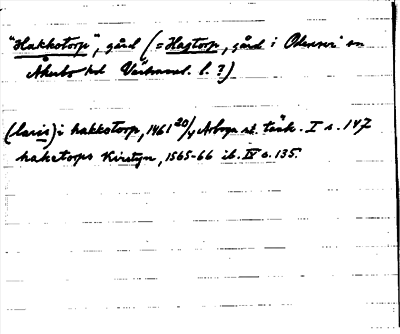 "Hakkotorp", gård (= Hagtorp, gård i Odensvi sn
Åkerbo hd Västmanl. l. ?)
(laris) i hakkstorp, 1461 20/4 Arboga rt. tänk. I s. 147
haketorps Kirstyn, 1565-66 ib. IV s. 135.